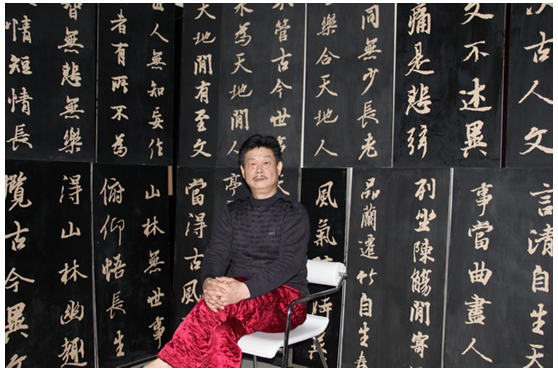 古人文
文不述異
痛是悲弦
同無少長老
樂合天地間
管古今世
為天地間人
天地間有至文
人無知妄作
者有所不為
無悲無樂
情短情長
清自生天
事當曲盡人
列坐陳觴閒寄
品蘭遷竹自生春
風氣
亭
當得古風
山林無世事
俯仰悟長生
得山林幽趣
覽古今異文